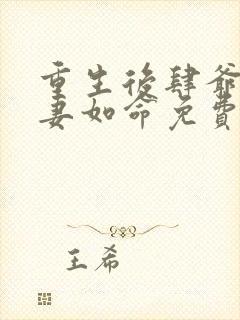 重生後肆爺
妻如命免費
王希